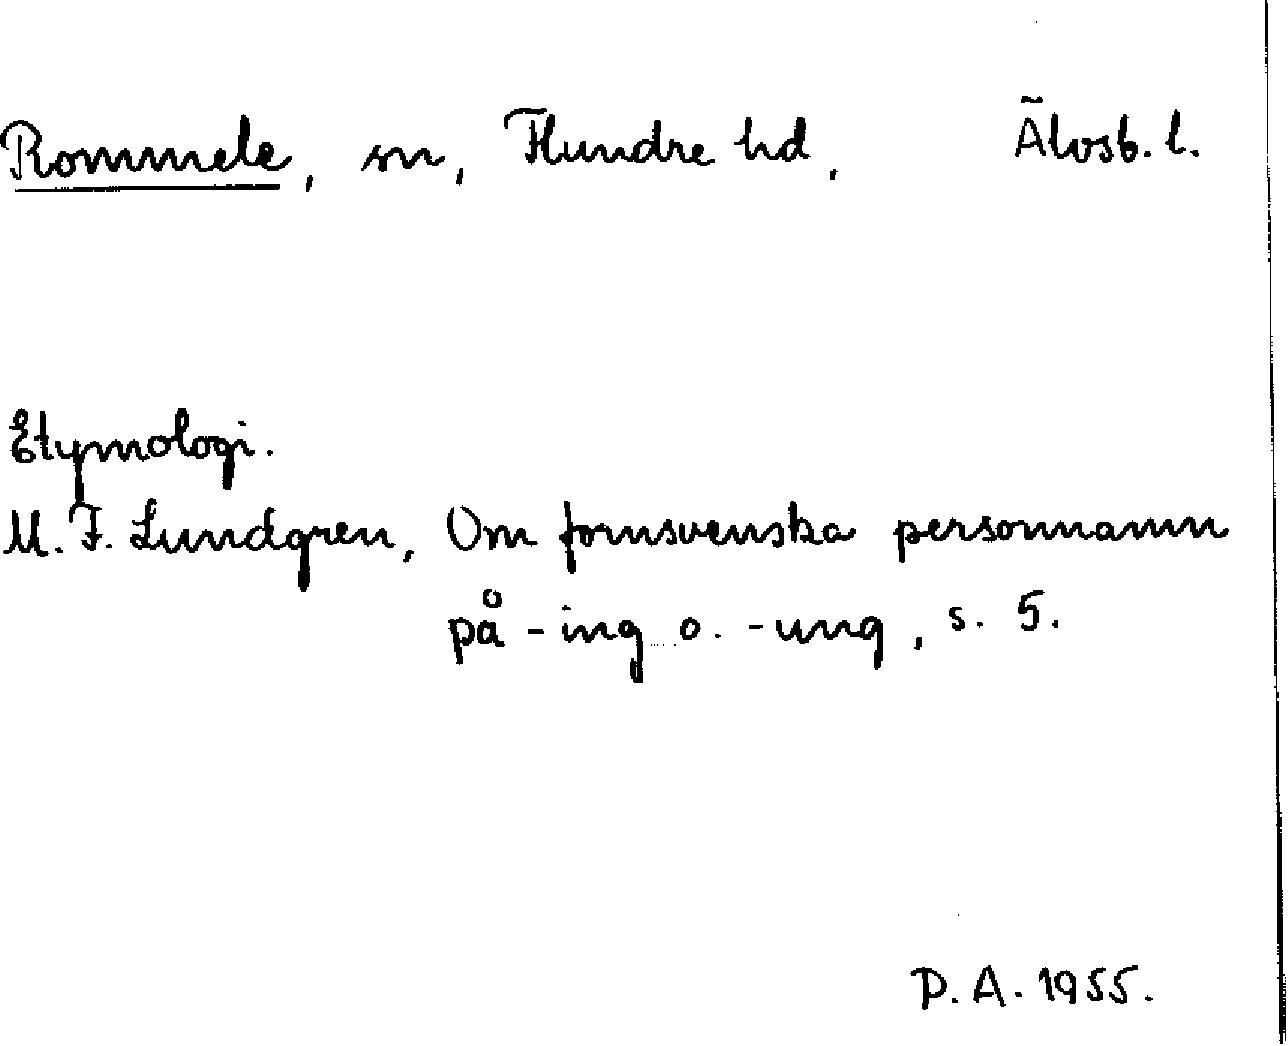 Rommele, sn, Flundre hd, Älvsb. l.
Etymologi.
M. F. Lundgren, Om fornsvenska personnamn
på -ing o. -ung, s. 5.
D. A. 1955.